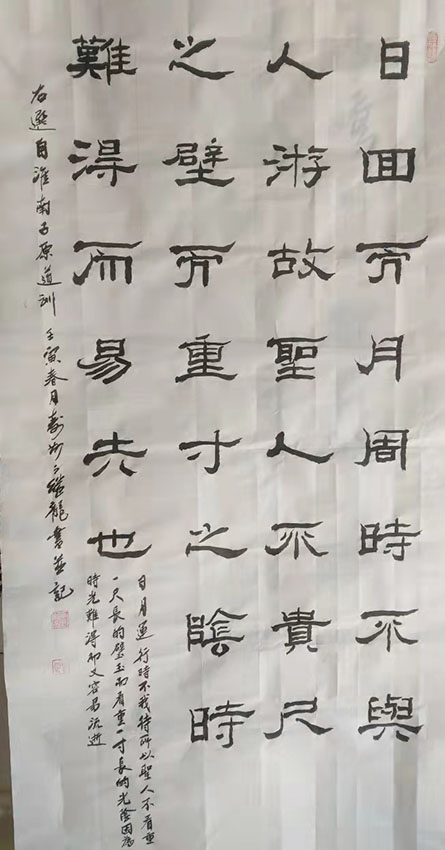 日回而月周時不與
人游故聖人不貴尺
之璧而重寸之陰時
難得而易失也
日月運行時不我待所以聖人不看重
一尺長的璧玉而看重一寸長的光陰因為
時光難得而又容易流逝
右選自淮南子原道訓 壬寅春月壽州繼龍書並記